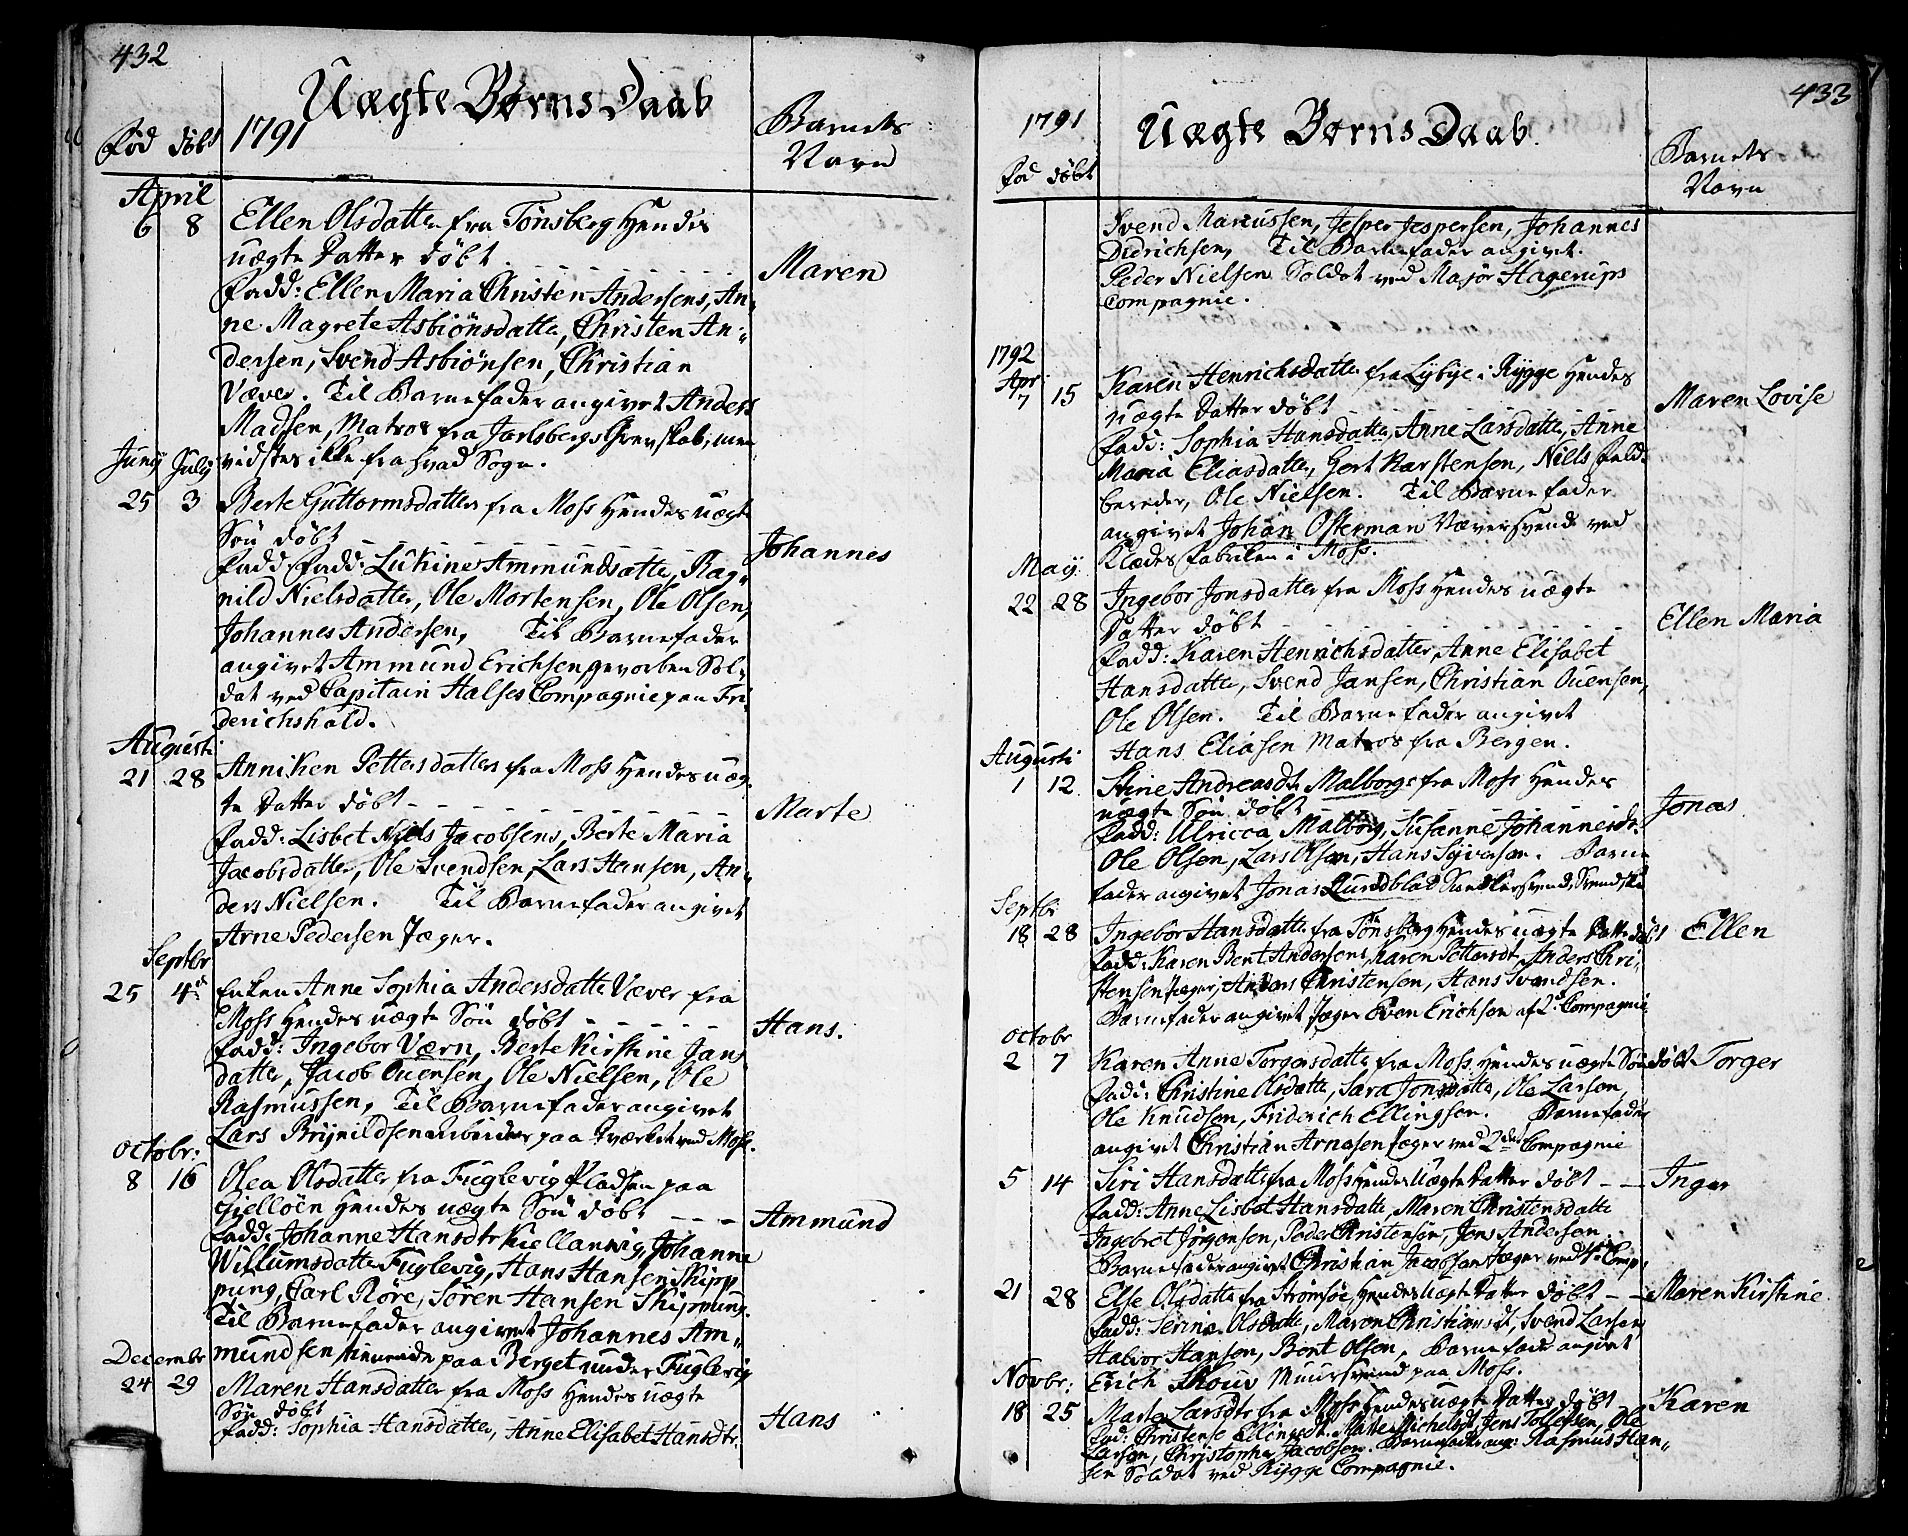 432
Uægte Børns Daab
Fød døbt 1791
Barnets
Navn
April
6 8 Ellen Olsdatter fra Tønsberg Hendes
uægte Datter døbt
Maren
Fadd: Ellen Maria Christen Andersens, An-
ne Magrete Asbiönsdatter, Christen An-
dersen, Svend Asbiönsen, Christian
Væver. Til Barnefader angivet Anders
Madsen, Matros fra Jarlsbergs Grevskab, men
vidstes ikke fra hvad Sogn.
Juny July
25 3 Berte Guttormsdatter fra Moss Hendes uægte
Søn døbt
Johannes
Fadd: Fadd: Lukine Ammundsatter, Rag-
nild Nielsdatter, Ole Mortensen, Ole Olsen,
Johannes Andersen, Til Barnefader
angivet Ammund Erichsen, gevorben Sol-
dat ved Capitain Halses Compagnie paa Fri
derichshald.
Augusti
21 28 Anniken Pettersdatter fra Moss Hendes uæg-
te Datter døbt
Marte
Fadd: Lisbet Niels Jacobsens, Berte Maria
Jacobsdatter, Ole Svendsen, Lars Hansen, An-
ders Nielsen. Til Barnefader angivet
Arne Pedersen Jæger.
Septbr
25 4 Enken Anne Sophia Andersdatter Væver fra
Moss Hendes uægte Søn døbt
Hans.
Fadd: Ingebor Værn, Berte Kirstine Jans
datter, Jacob Ouensen, Ole Nielsen, Ole
Rasmussen, Til Barnefader angivet
Lars Brynildsen arbeider paa Værket ved Moss.
Octobr:
8 16 Olea Olsdatter fra Fuglevig Pladsen paa
Gielløen Hendes uægte Søn døbt
Ammund
Fadd: Johanne Hansdtr Kiellanvig, Johanne
Willumsdatter Fuglevig, Hans Hansen Skipp
pung, Carl Röre, Sören Hansen Skippung.
Til Barnefader angivet Johannes Am-
mundsen, tienende paa Berget under Fuglevig
Decembr
24 29 Maren Hansdatter fra Moss Hendes uægte
Søn døbt
Hans
Fadd: Sophia Hansdatter, Anne Elisabet Hansdtr.
433
1791 Uægte Børns Daab.
Fød døbt
Barnets
Navn
Svend Marcussen, Jesper Jespersen, Johannes
Diderichsen, Til Barnefader angivet.
Peder Nielsen Soldat ved Major Hagerups
Compagnie.
1792
Apr:
7 15 Karen Henrichsdatter fra Lybye i Rygge Hendes
uægte Datter døbt
Maren Lovise
Fadd: Sophia Hansdatter, Anne Larsdatter, Anne
Maria Eliasdatter, Gert Karstensen, Niels Feld-
bereder, Ole Nielsen. Til Barnefader
angivet Johan Osterman Væversvend ved
Klædes Fabriken i Moss.
May
22 28 Ingebor Jonsdatter fra Moss Hendes uægte
Datter døbt
Ellen Maria
Fadd: Karen Henrichsdatter, Anne Elisabet
Hansdatter, Svend Jansen, Christian Ouensen,
Ole Olsen. Til Barnefader angivet
Hans Eliasen Matros fra Bergen.
Augusti
1 12 Stine Andreasdt. Malborgs fra Moss Hendes
uægte Søn døbt
Jonas
Fadd: Ulricca Malborg, Susanne Johannesdr.
Ole Olsen, Lars Olsen, Hans Syversen. Barne
fader angivet Jonas Lundblad Snedkersvend, Svendske
Septbr
18 28 Ingebor Hansdatter fra Tønsberg Hendes uægte Datter døbt Ellen
Fadd: Karen Bent Andersens, Karen Pettersdt, Anders Chri-
stensen Jæger, Anders Christensen, Hans Svendsen.
Barnefader angivet Jæger Even Erichsen af 2. Compagnie
Octobr
2 7 Karen Anne Torgersdatter fra Moss. Hendes uægte Søn døbt Torger
Fadd: Christine Olsdatter, Sara Jonsdatter, Ole Larsen,
Ole Knudsen, Friderich Ellingsen. Barnefader
angivet Christian Arnesen Jæger ved 2det Compagnie
5 14 Siri Hansdatter fra Moss Hendes Uægte Datter døbt Inger
Fadd: Anne Lisbet Hansdatter, Maren Christensdatter
Ingebret Jörgensen, Peder Christensen, Jens Andersen.
Barnefader angivet Christian Jacobsen Jæger ved 4de Comp.
21 28 Else Olsdatter fra Strömsöe Hendes Uægte Datter døbt Maren Kirstine.
Fadd: Serine Olsdatter, Maren Christiansdt, Svend Larsen,
Halvor Hansen, Bent Olsen, Barnefader angivet
Erich Skouv Muursvend paa Moss.
Novbr:
18 25 Marte Larsdtr fra Moss Hendes uægte Datter døbt Karen
Fad: Christense Ellensdt. Marte Michelsdt, Jens Tollefsen, Ole
Larsen, Christopher Jacobsen. Barnefader ang: Rasmus Han-
sen Soldat ved Rygge Compagnie.